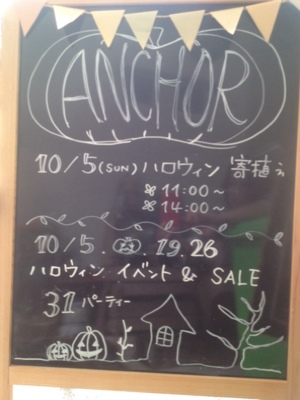 ANCHOR
10/5(SUN) ハロウィン 寄植え
11:00～
14:00～
10/5. 19.26
ハロウィン イベント & SALE
31 パーティー